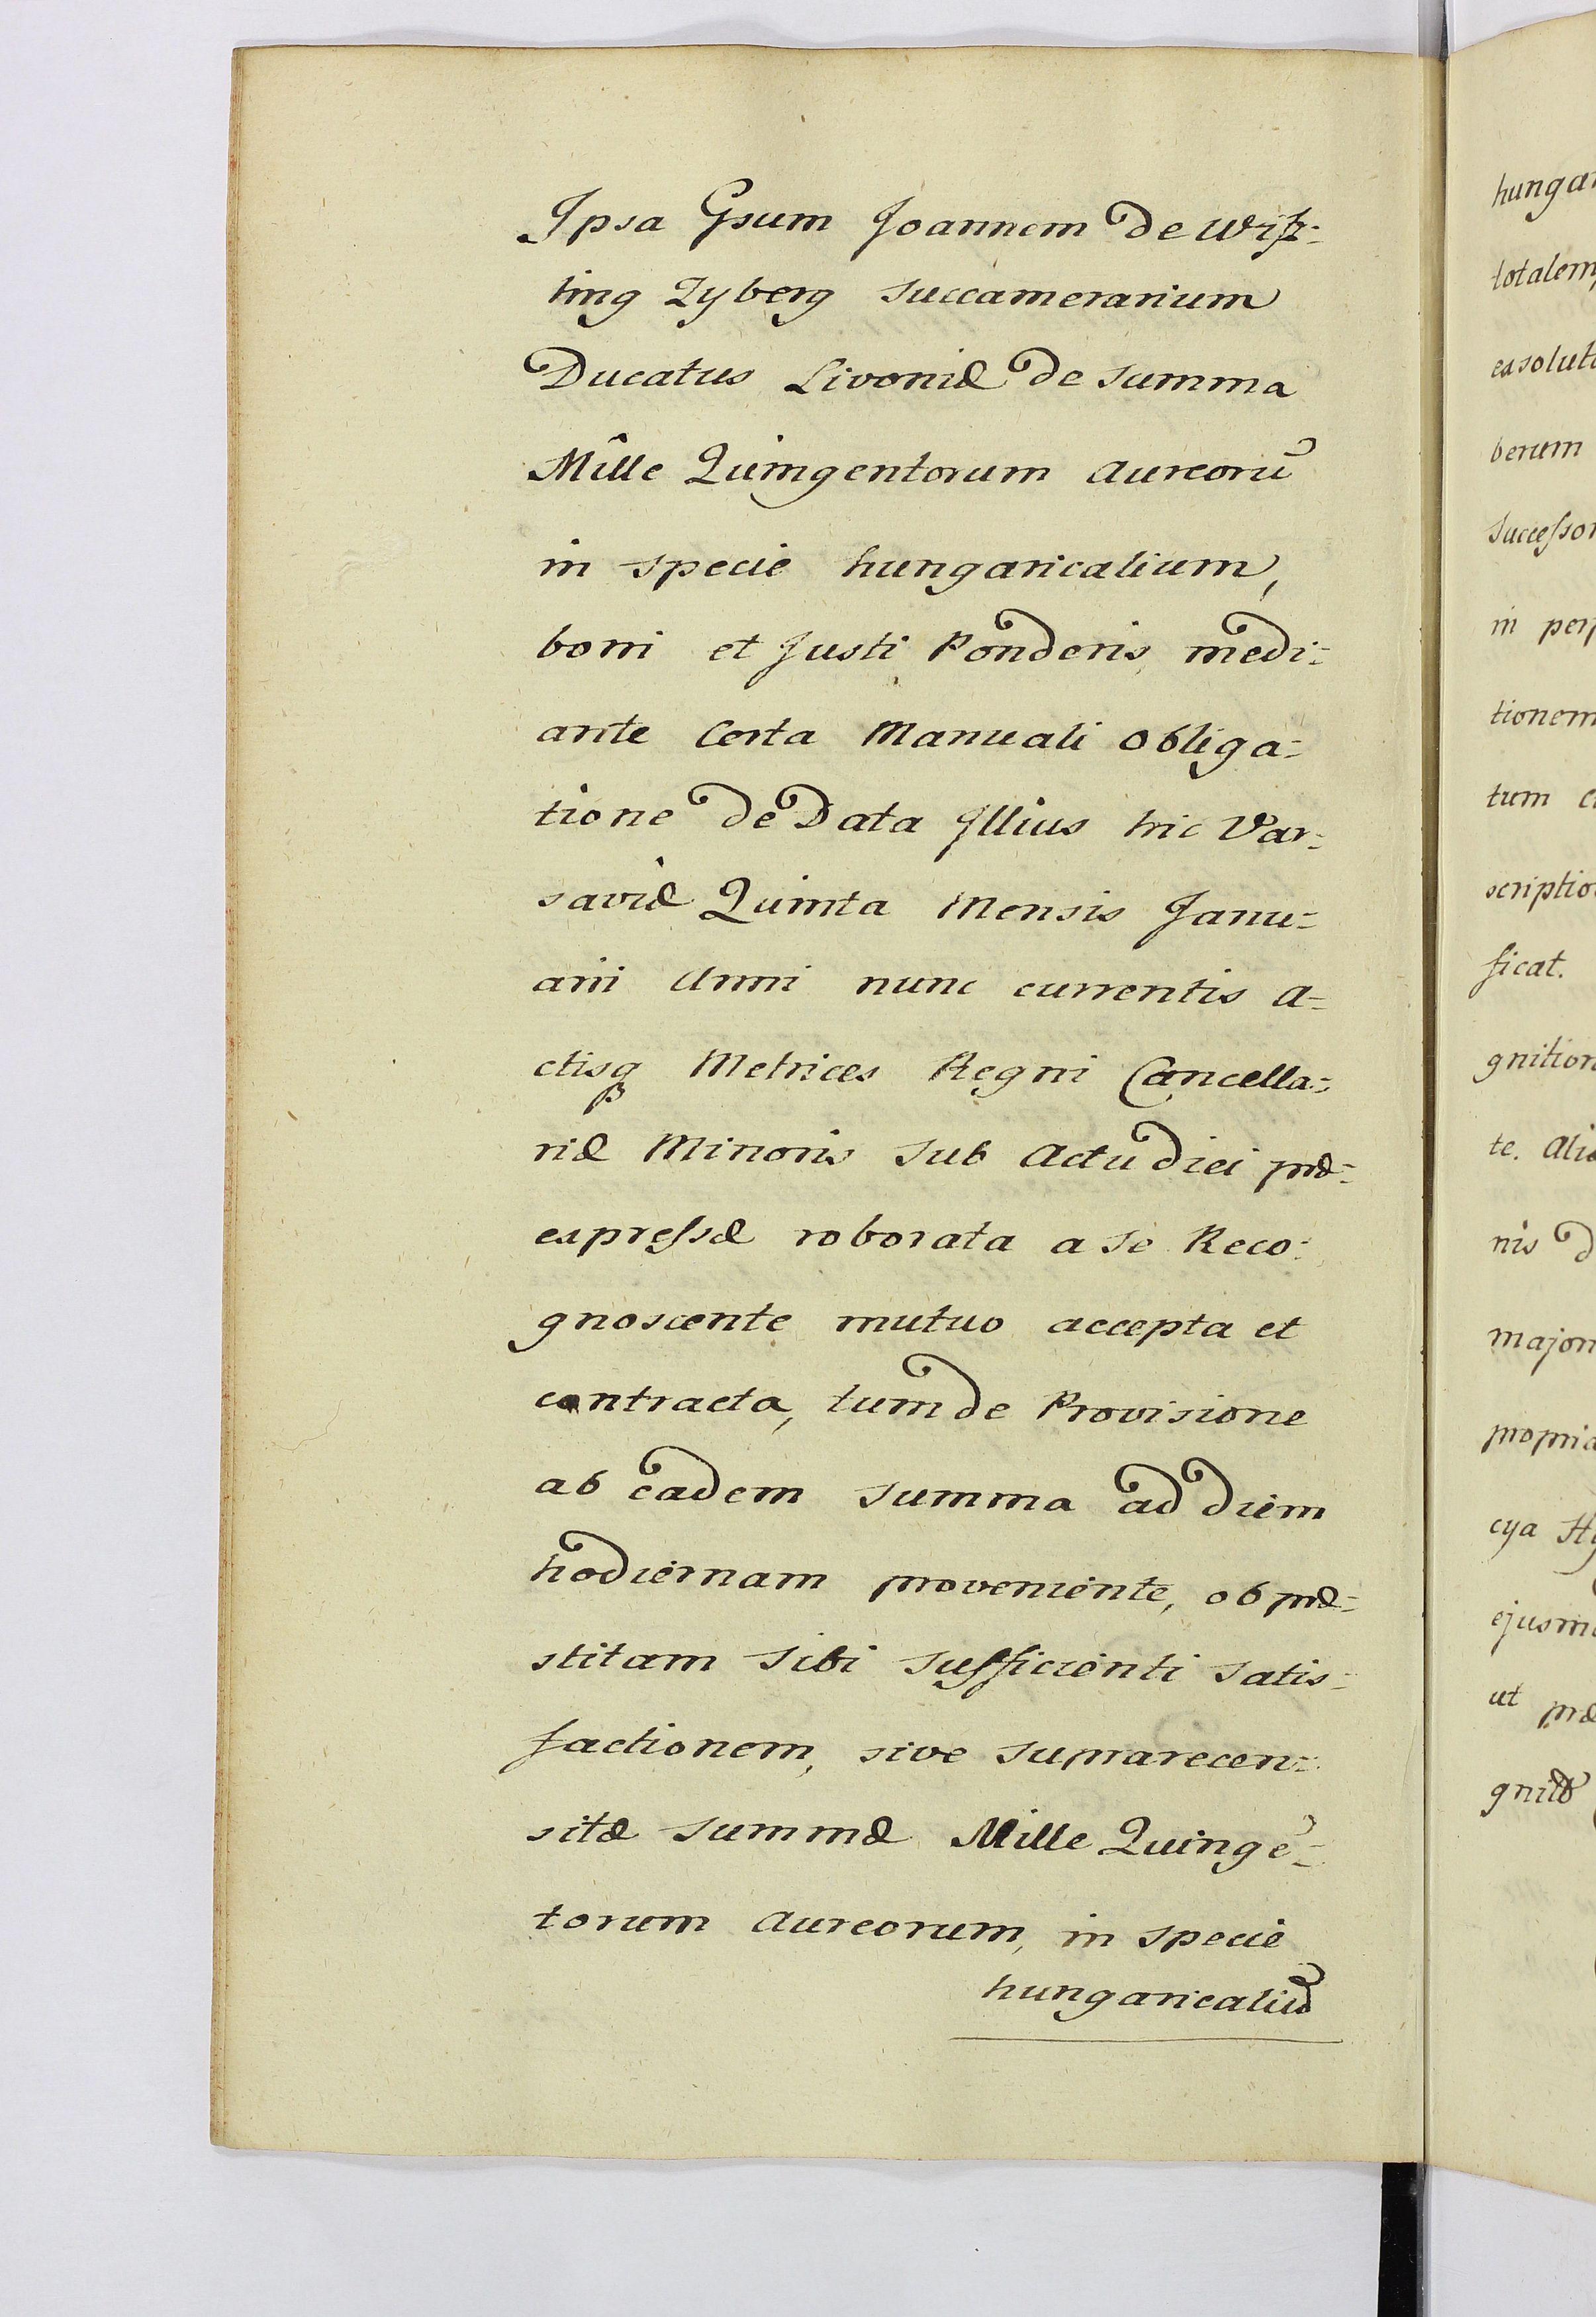 Ipsa Gsum Joannem de Wisz-
ting Zyberg Succamerarium
Ducatus Livoniæ de summa
Mille Quingentorum aureorū
in specie hungaricalium,
boni et Justi Ponderis, medi-
ante Certa Manuali Obliga-
tione de Data Illius hic Var-
saviæ Quinta Mensis Janu-
arii Anni nunc currentis A-
ctisq Metrices Regni Cancella-
riæ Minoris sub Actu diei præ-
expressæ roborata a se Reco-
gnoscente mutuo accepta et
contracta, tum de Provisione
ab eadem summa ad diem
hodiernam proveniente, ob præ-
stitam sibi sufficienti satis-
factionem, sive suprarecen-
sitæ summæ Mille Quingē-
torum Aureorum, in specie
hungaricaliū
hungar
totalem
exsolut
berum
successor
in perp
tionem
tum
scriptio
ficat.
gnition
te. Ali
nis d
major
propria
cya
ejusm
ut præ